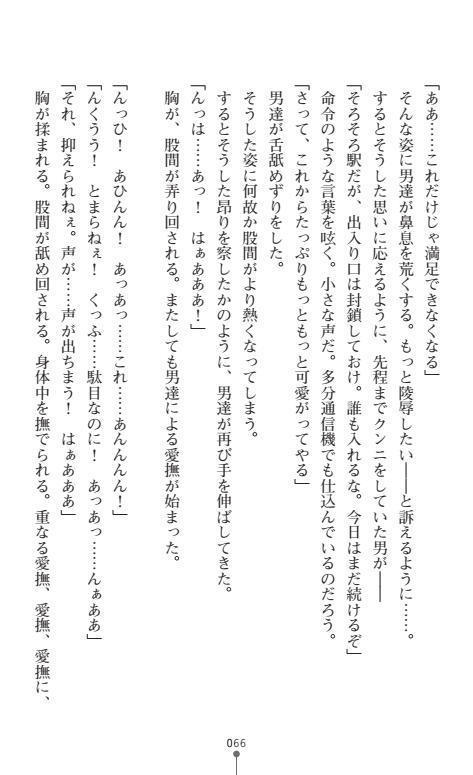 「ああ……これだけじゃ満足できなくなる」
そんな姿に男達が鼻息を荒くする。もっと陵辱したい――と訴えるように……。
するとそうした思いに応えるように、先程までクンニをしていた男が――
「そろそろ駅だが、出入り口は封鎖しておけ。誰も入れるな。今日はまだ続けるぞ」
命令のような言葉を呟く。小さな声だ。多分通信機でも仕込んでいるのだろう。
「さって、これからたっぷりもっともっと可愛がってやる」
男達が舌舐めずりをした。
そうした姿に何故か股間がより熱くなってしまう。
するとそうした昂りを察したかのように、男達が再び手を伸ばしてきた。
「んっは……あっ！　はぁあああ！」
胸が、股間が弄り回される。またしても男達による愛撫が始まった。
「んっひ！　あひんん！　あっあっ……これ……あんんんん！」
「んくうう！　とまらねぇ！　くっふ……駄目なのに！　あっあっ……んぁああ」
「それ、抑えられねぇ。声が……声が出ちまう！　はぁあああ」
胸が揉まれる。股間が舐め回される。身体中を撫でられる。重なる愛撫、愛撫、愛撫に、
066